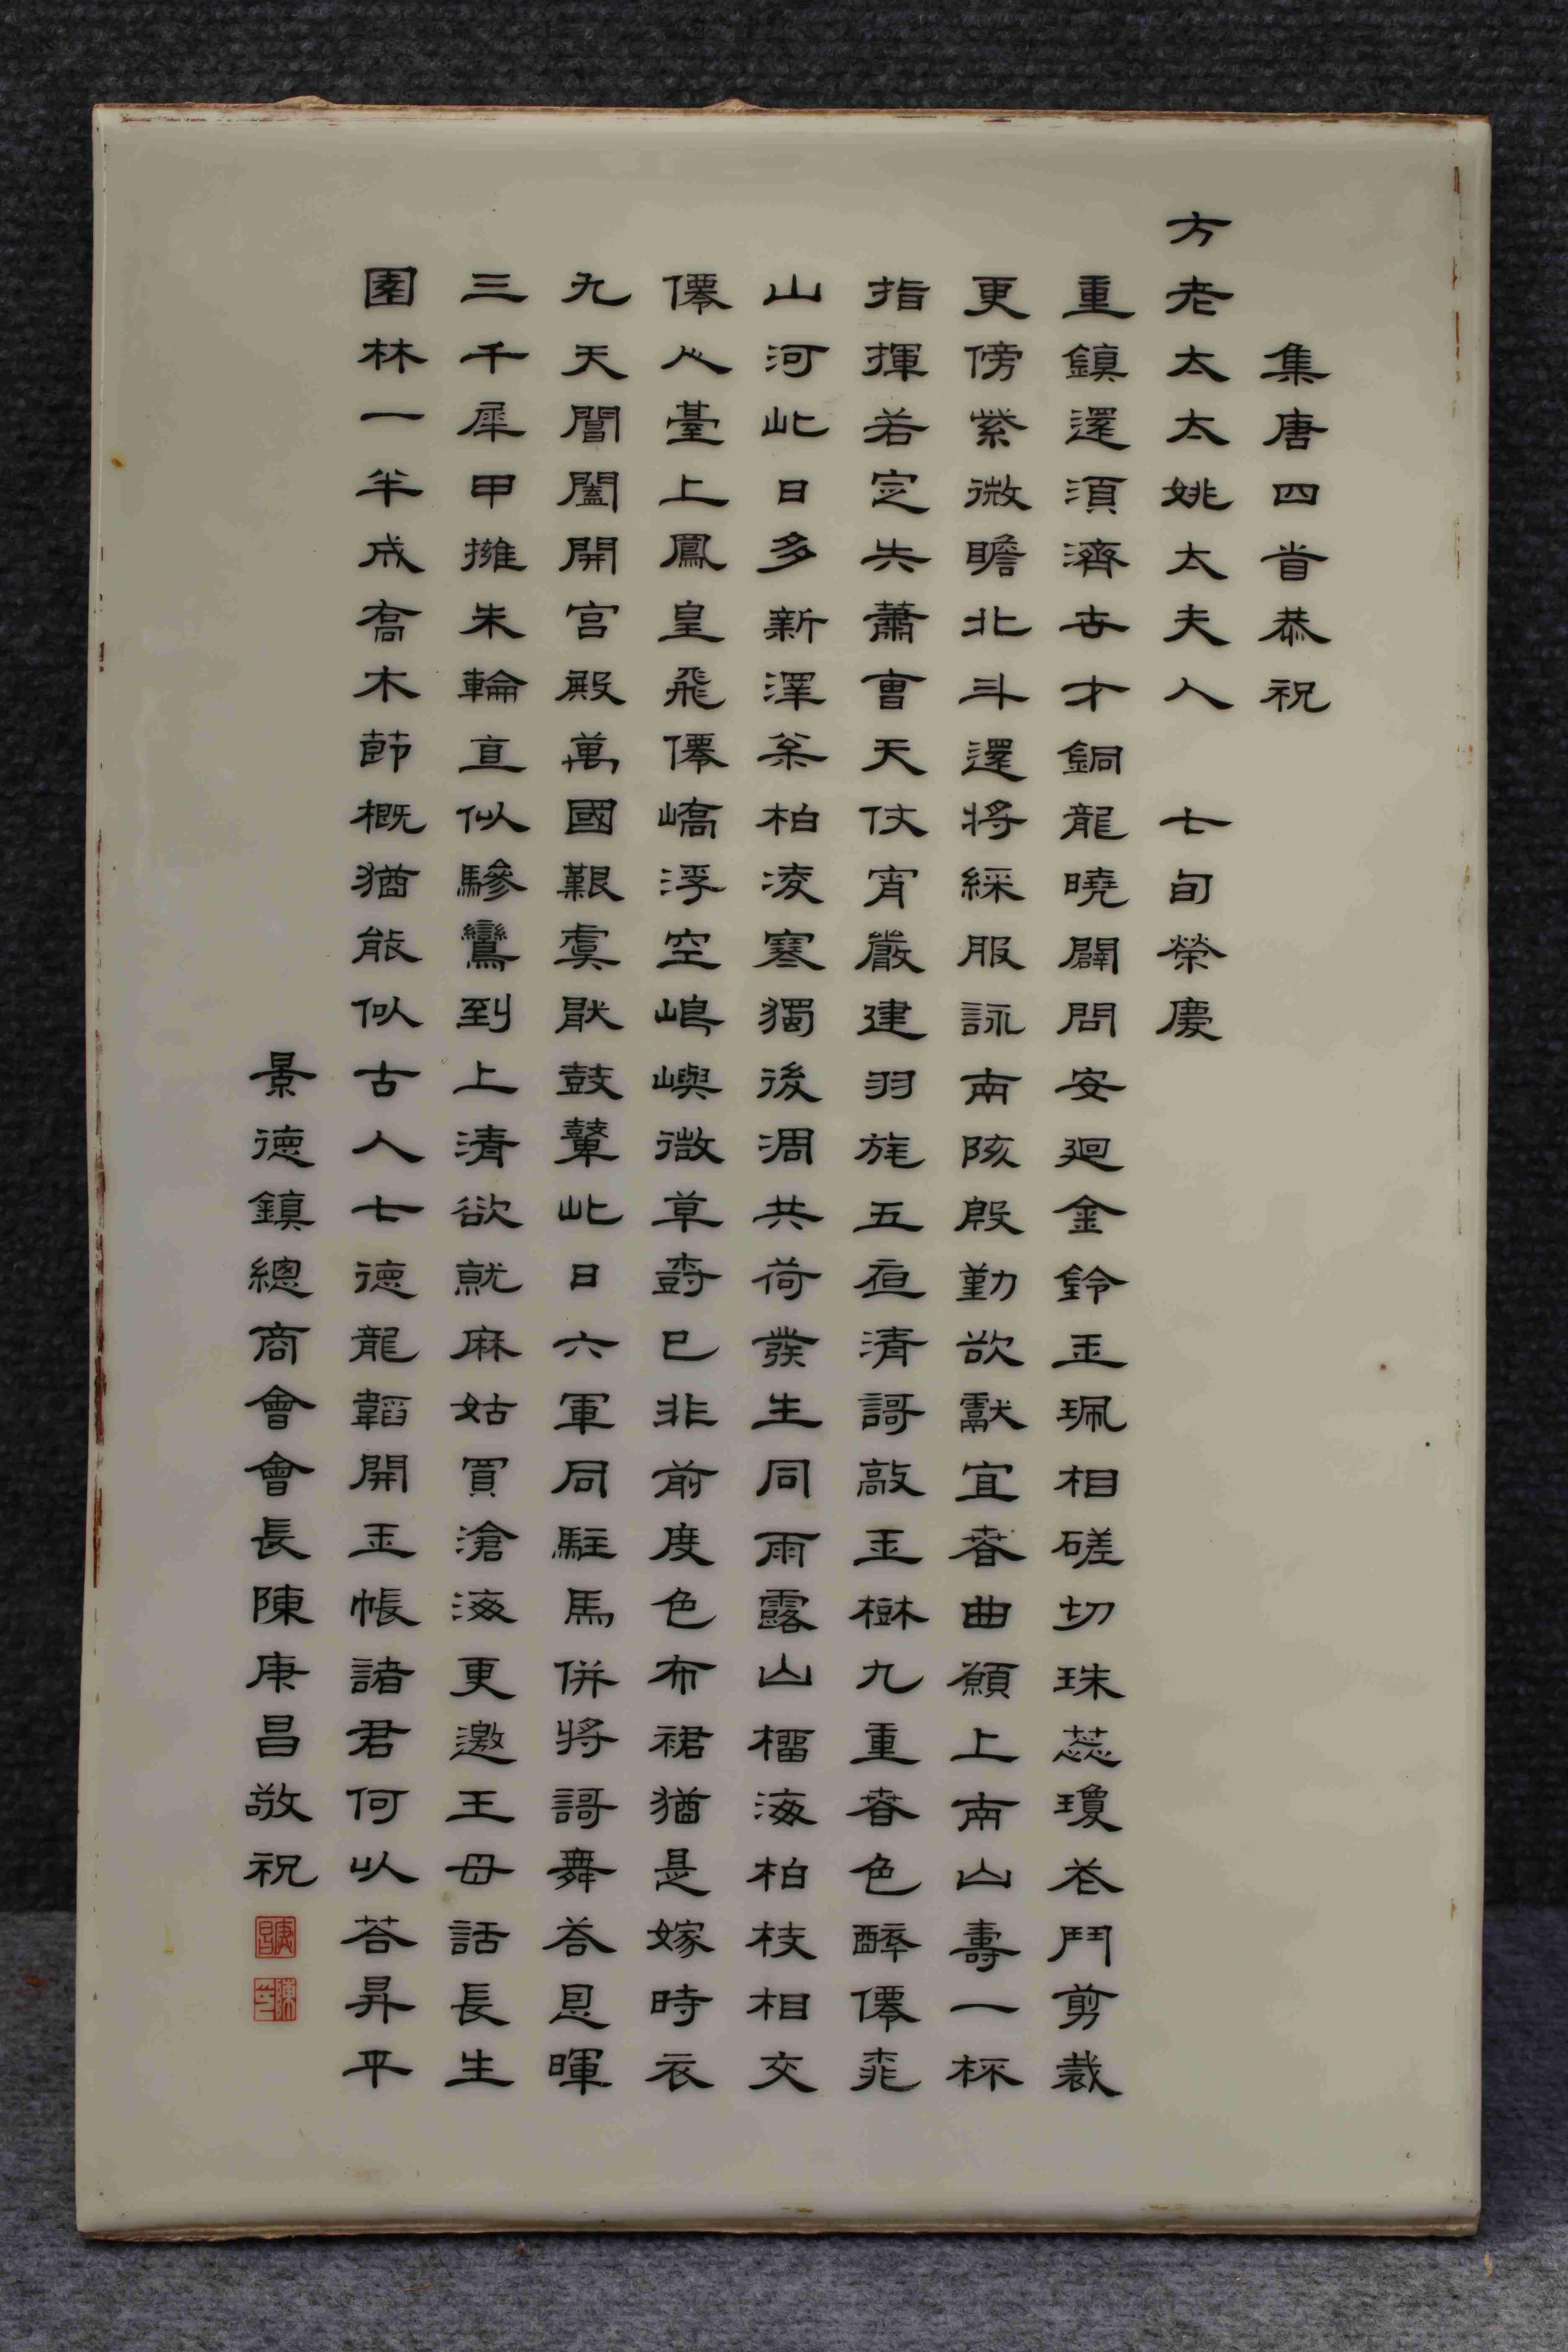 集唐四首恭祝
方老太太姚太夫人　七旬榮慶
重鎮還須濟世才銅龍曉闢問安廻金鈴玉珮相磋切珠蕊瓊花鬥剪裁
更傍紫微瞻北斗還將綵服詠南陔殷勤欲獻宜春曲願上南山壽一杯
指揮若定失蕭曹天仗宵嚴建羽旄五夜清謌敲玉樹九重春色醉僊桃
山河此日多新澤枀柏凌寒獨後凋共荷發生同雨露山榴海柏枝相交
僊人臺上鳳皇飛僊嶠浮空嶋嶼微草萼已非前度色布裙猶是嫁時衣
九天閶闔開宮殿萬國艱虞厭鼓鼙此日六軍同駐馬併將謌舞荅恩暉
三千犀甲擁朱輪直似驂鸞到上清欲就麻姑買滄海更邀王母話長生
園林一半成喬木節概猶能似古人七德龍韜開玉帳諸君何以荅昇平
景德鎮總商會會長陳庚昌敬祝
庚昌
陳印